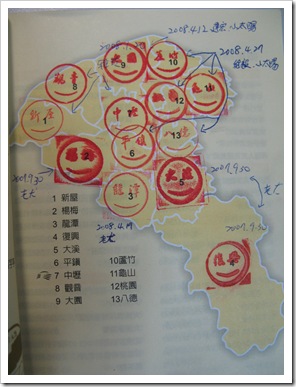 2008.4.12 蘆竹 小太陽
2008.4.27
小太陽
大園
9
蘆竹
10
觀音
8
龜山
11
桃園
12
中壢
7
新屋
1
平鎮
6
八德
13
楊梅
2
大溪
5
龍潭
3
復興
2007.9.30
老大
2007.9.30
老大
2008.4.19
老大
2007.9.30
1 新屋
2 楊梅
3 龍潭
4 復興
5 大溪
6 平鎮
7 中壢
8 觀音
9 大園
10蘆竹
11龜山
12桃園
13八德